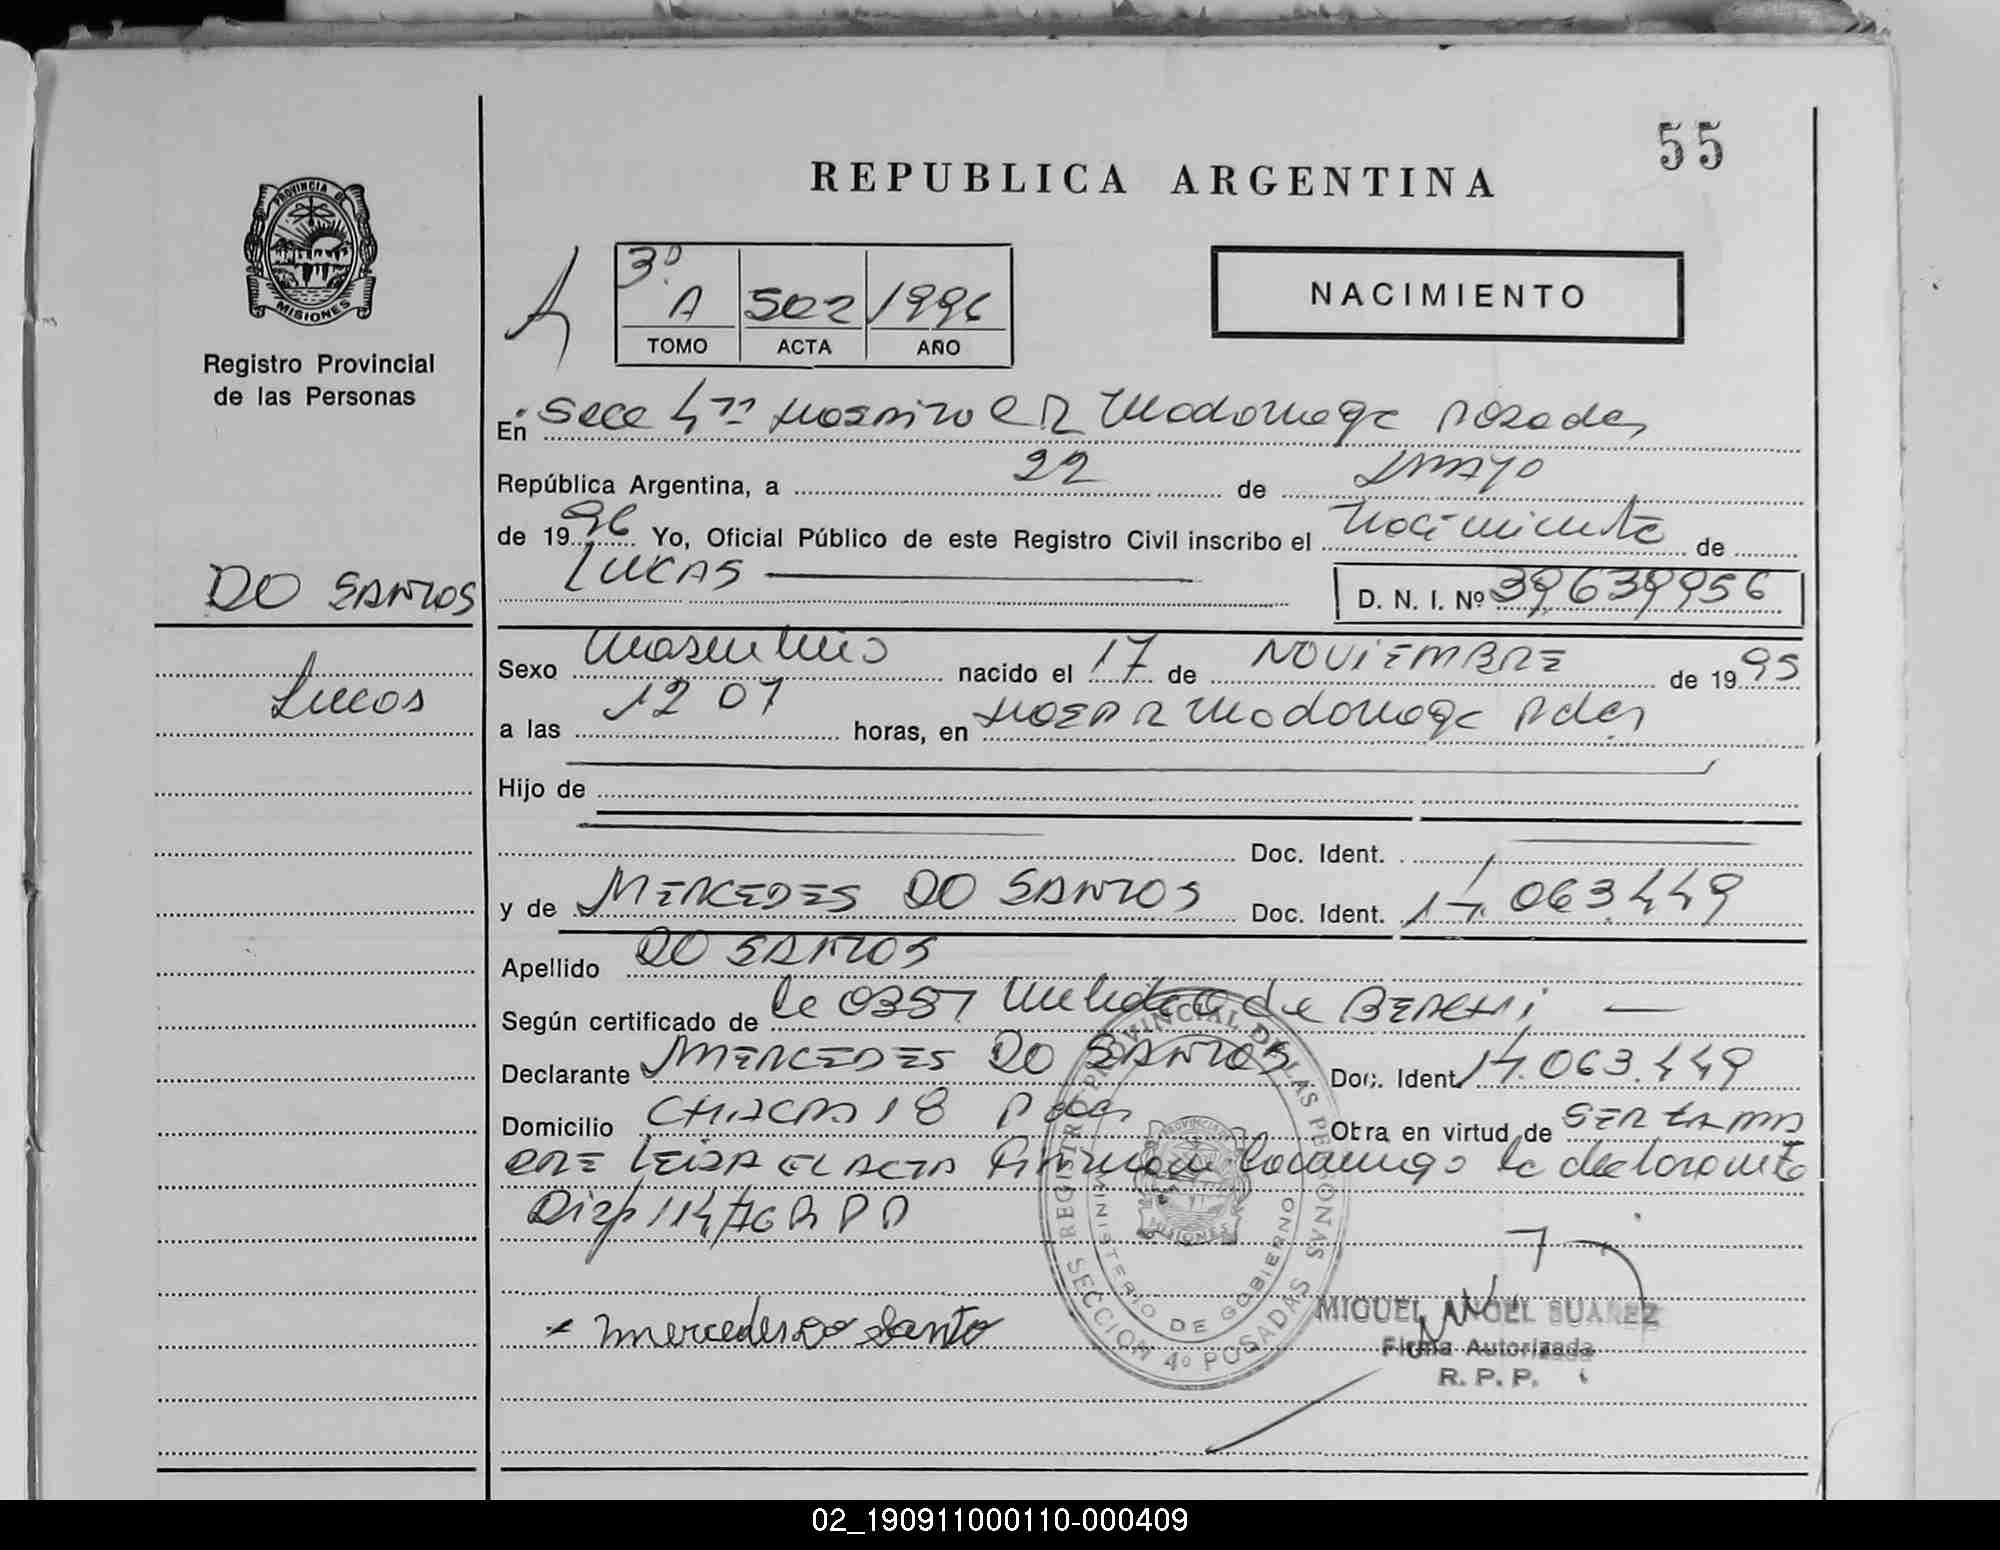 55
REPUBLICA ARGENTINA
PROVINCIA DE
MISIONES
Registro Provincial
de las Personas
3º
A 502 1996
TOMO ACTA AÑO
NACIMIENTO
En Secc 4ta Hospital R Madariaga Posadas
República Argentina, a 22 de MAYO
de 1996 Yo, Oficial Público de este Registro Civil inscribo el Nacimiento de
LUCAS
D. N. I. Nº 39639956
DO SANTOS
Lucas
Sexo Masculino nacido el 17 de NOVIEMBRE de 1995
a las 12 07 horas, en Hosp R Madariaga Pdas
Hijo de
Doc. Ident.
y de MERCEDES DO SANTOS Doc. Ident. 14.063.449
Apellido DO SANTOS
Según certificado de la OBST de
Declarante MERCEDES DO SANTOS Doc. Ident 14.063.449
Domicilio CHACRA 18 Pdas Otra en virtud de SER LA MA
DRE LEIDA EL ACTA FIRMAN conmigo la declarante
Disp 114/76 R P P
MERCEDES DO SANTO
REGISTRO PROVINCIAL DE LAS PERSONAS
MINISTERIO DE GOBIERNO
SECCION 4º POSADAS
PROVINCIA DE
MISIONES
MIGUEL ANGEL SUAREZ
Firma Autorizada
R. P. P.
02_190911000110-000409